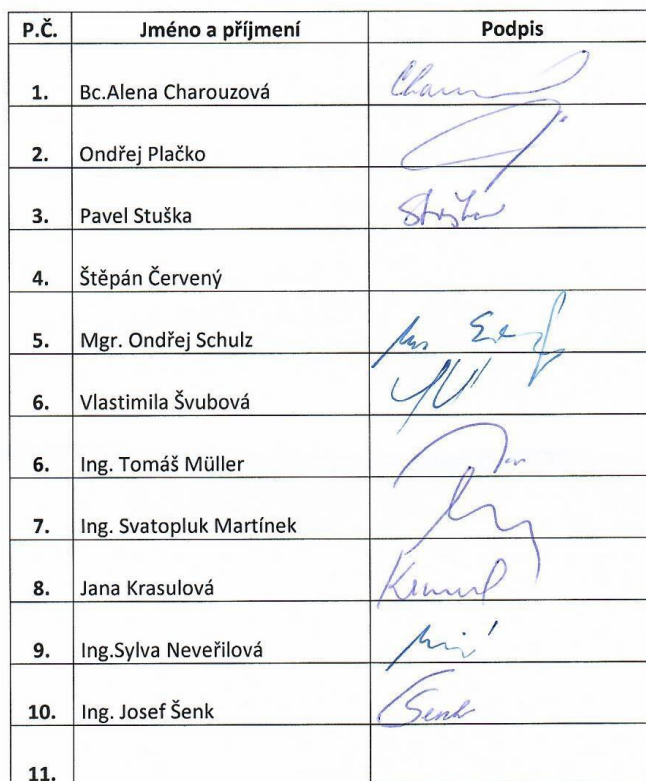 P.Č. Jméno a příjmení Podpis
1. Bc.Alena Charouzová
2. Ondřej Plačko
3. Pavel Stuška
4. Štěpán Červený
5. Mgr. Ondřej Schulz
6. Vlastimila Švubová
6. Ing. Tomáš Müller
7. Ing. Svatopluk Martínek
8. Jana Krasulová
9. Ing.Sylva Neveřilová
10. Ing. Josef Šenk Šenk
11.